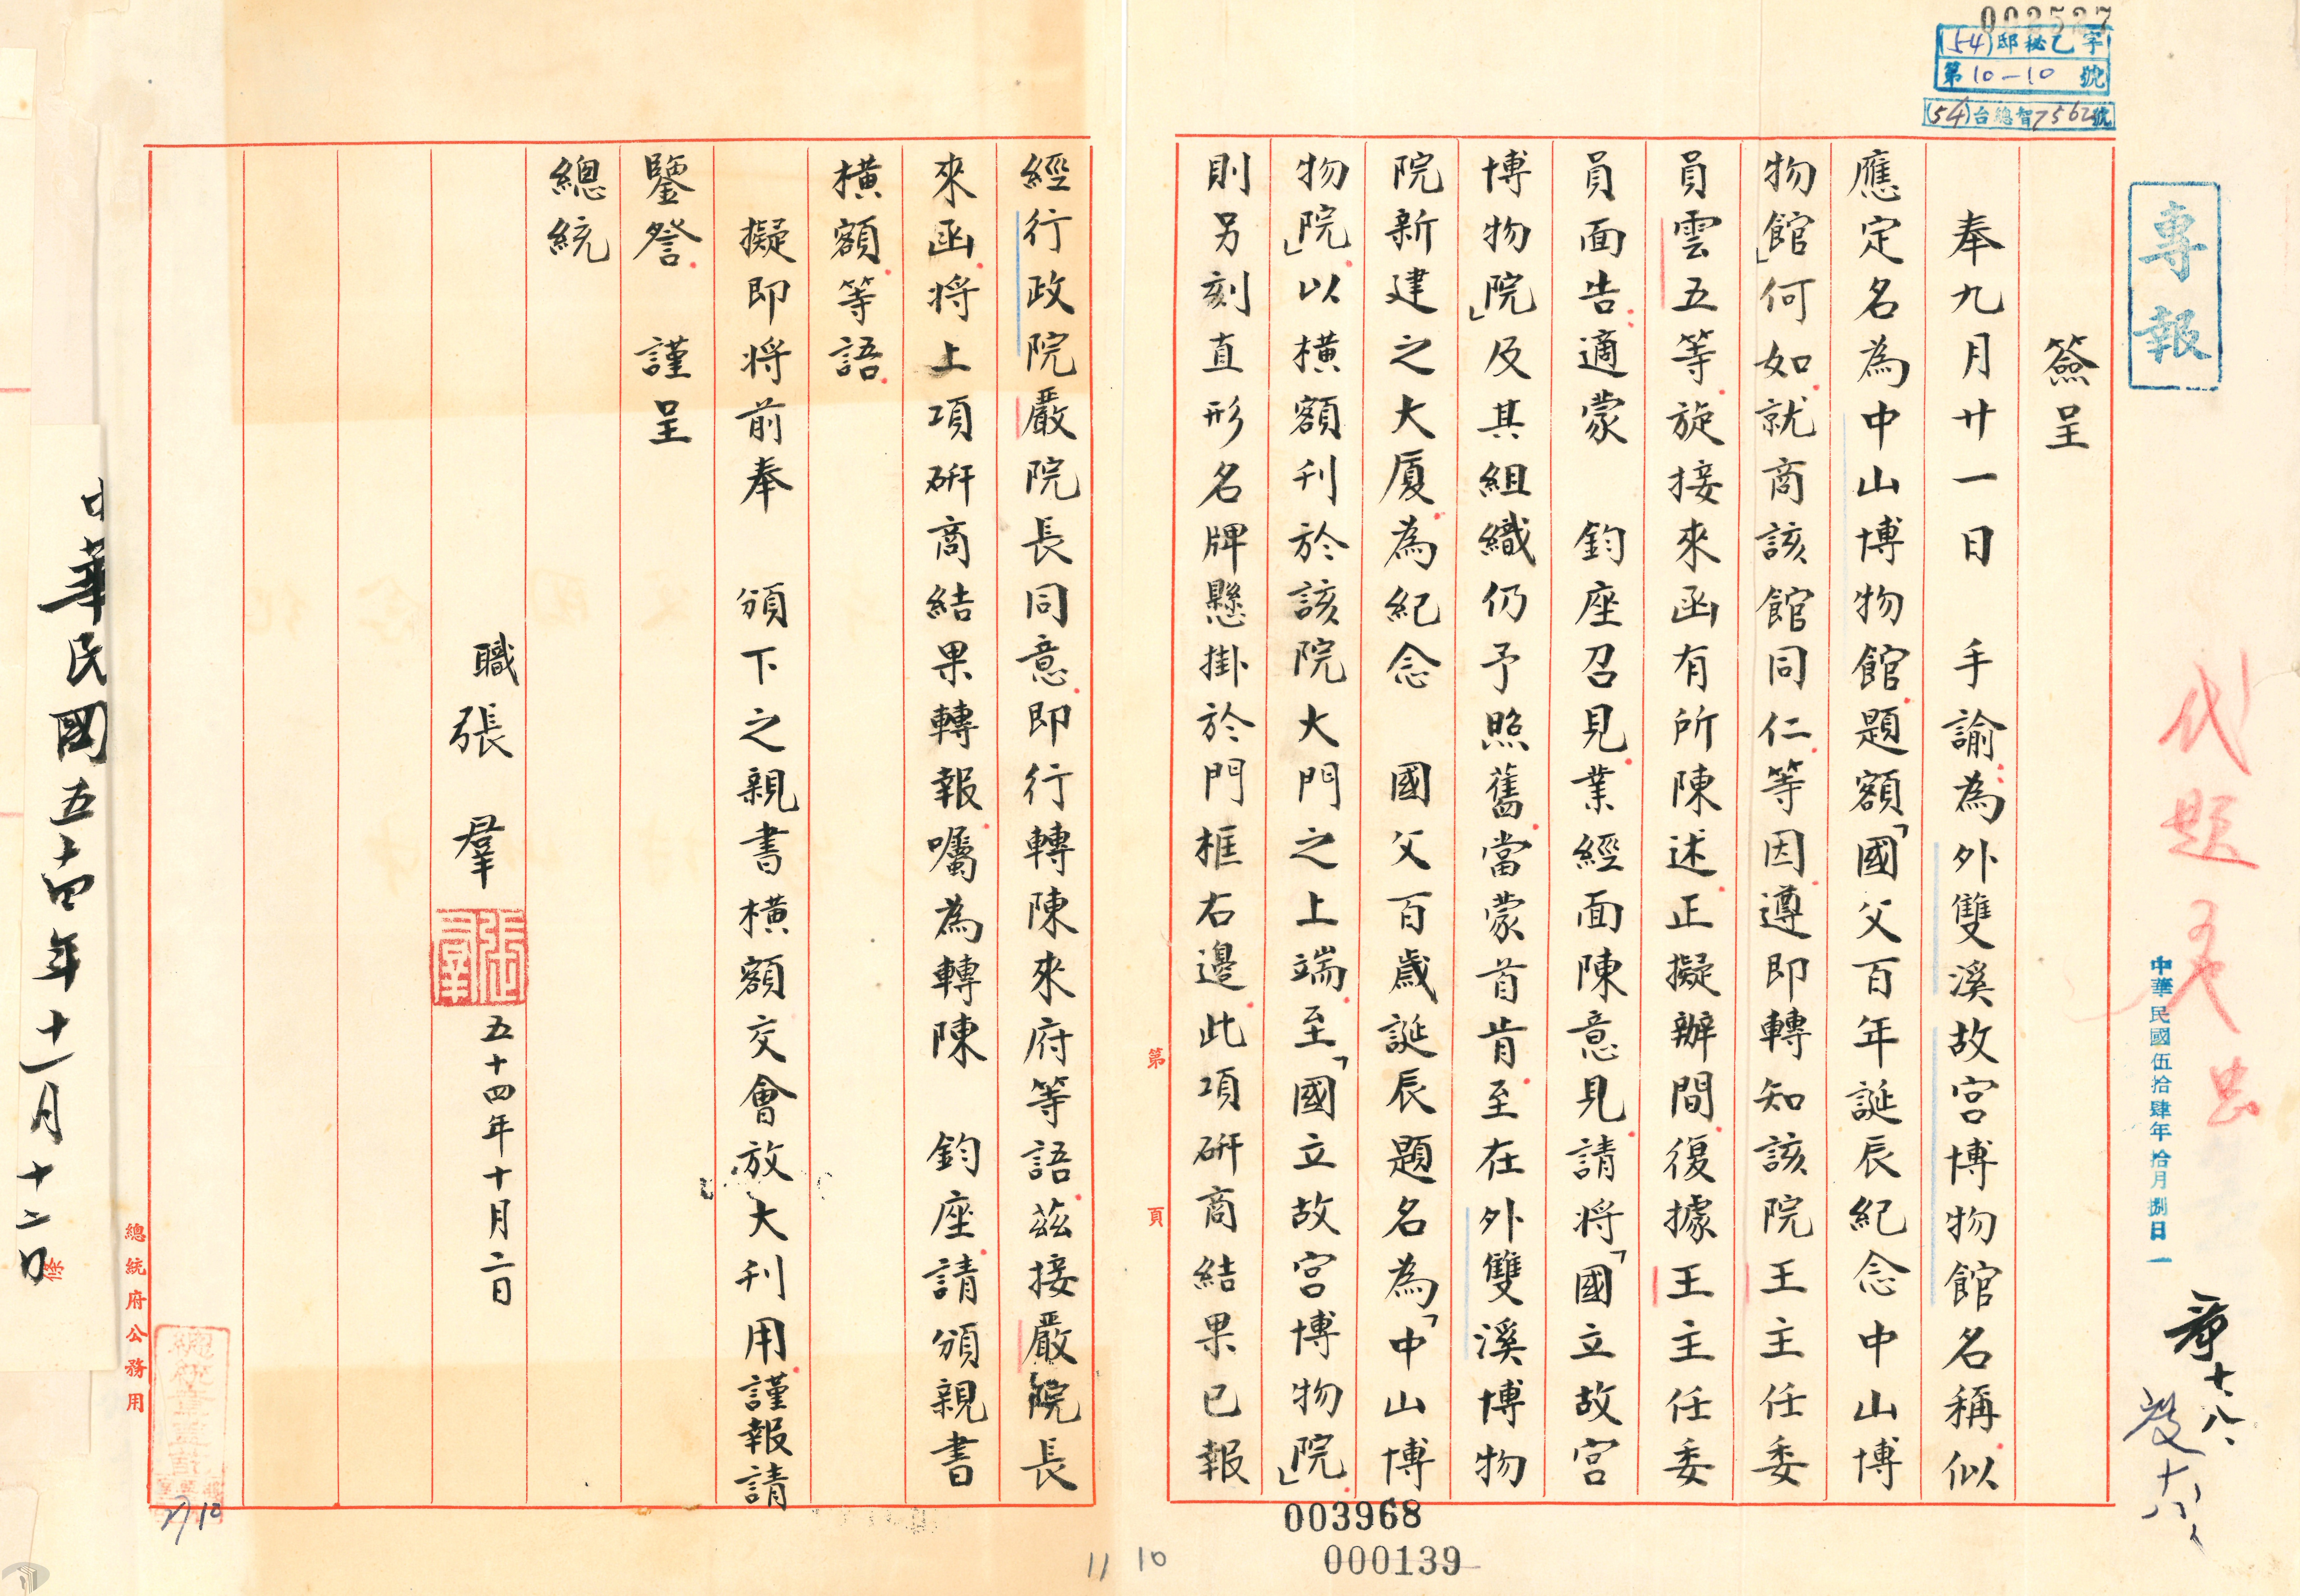 002527
(54)邸秘乙字
第10—10號
(54)台總智7562號
專報
簽呈
奉九月廿一日　手諭為外雙溪故宮博物館名稱似
應定名為中山博物館題額「國父百年誕辰紀念中山博
物館」何如就商該館同仁等因遵即轉知該院王主任委
員雲五等旋接來函有所陳述正擬辦間復據王主任委
員面告適蒙　鈞座召見業經面陳意見請將「國立故宮
博物院」及其組織仍予照舊當蒙首肯至在外雙溪博物
院新建之大厦為紀念　國父百歲誕辰題名為「中山博
物院」以橫額刊於該院大門之上端至「國立故宮博物院」
則另刻直形名牌懸掛於門框右邊此項研商結果已報
第　頁
經行政院嚴院長同意即行轉陳來府等語茲接嚴院長
來函將上項研商結果轉報囑為轉陳　鈞座請頒親書
橫額等語
擬即將前奉　頒下之親書橫額交會放大刊用謹報請
鑒詧　謹呈
總統
職張　羣
五十四年十月二日
代題
中華民國伍拾肆年拾月捌日
十、八、
十八
總統府公務用
中華民國五十四年十一月十二日
003968
000139
11 10